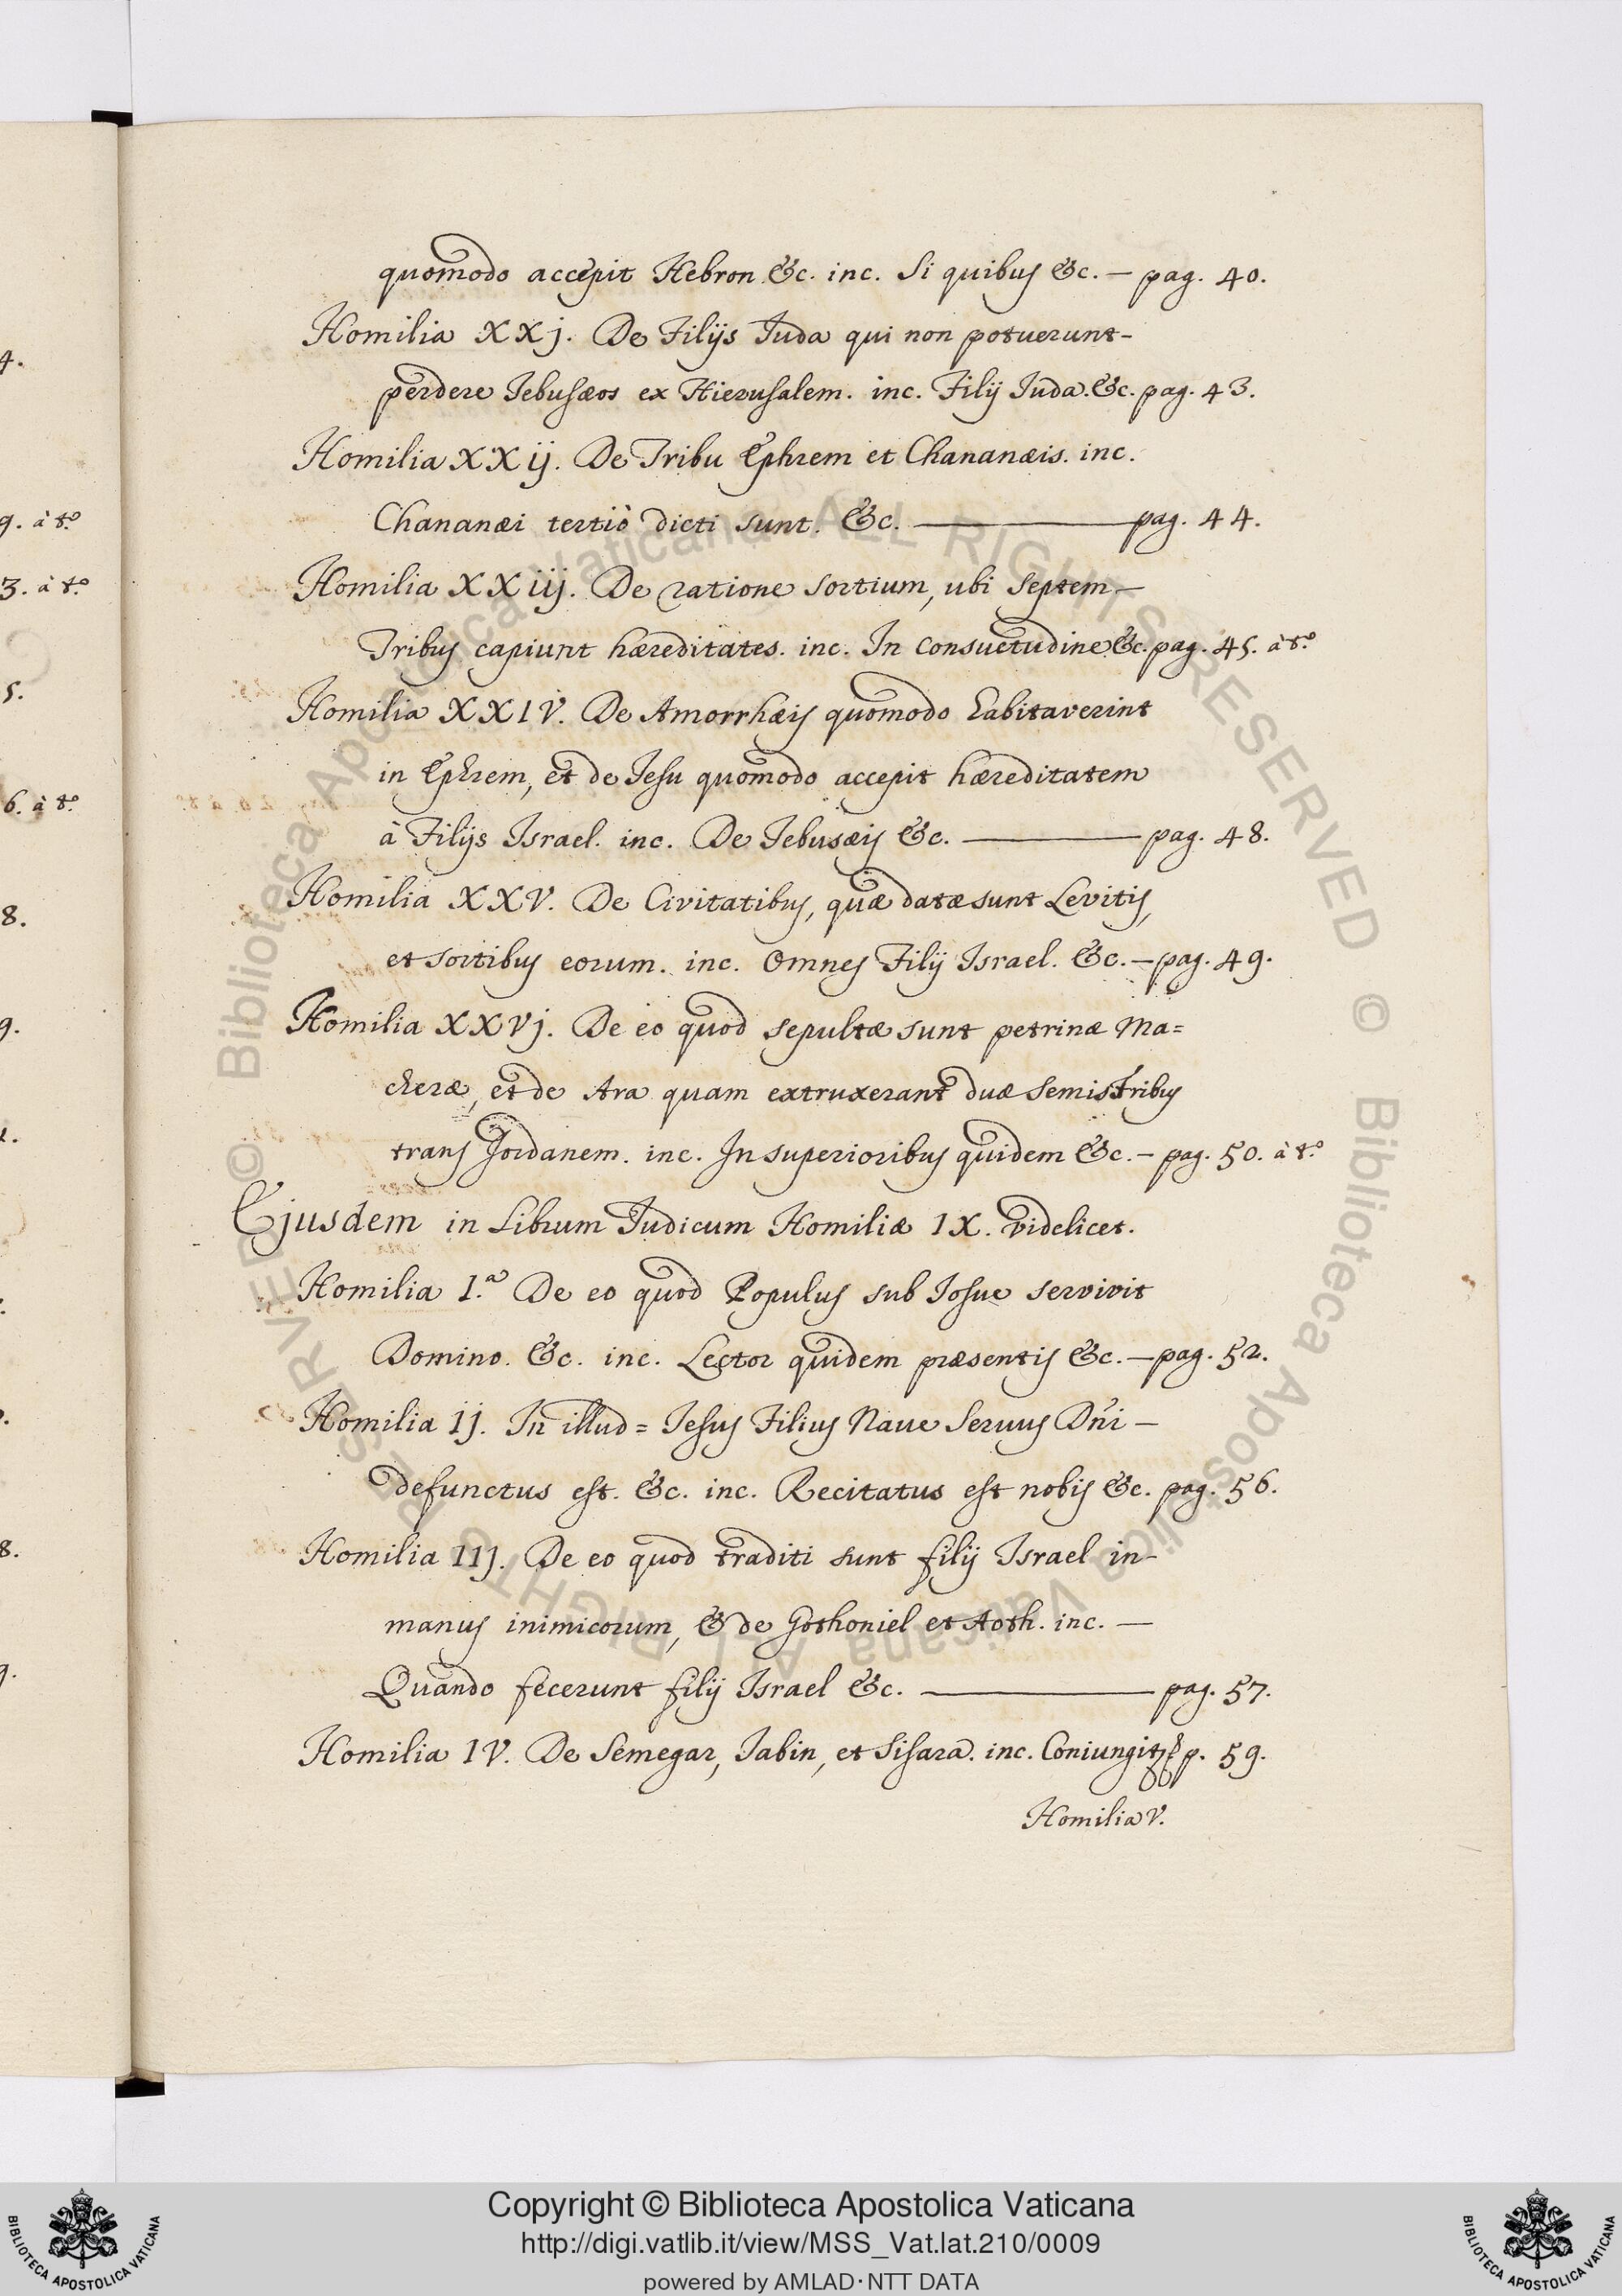 quomodo accepit Hebron &c. inc. Si quibus &c. — pag. 40.
Homilia XXj. De Filijs Juda qui non potuerunt-
perdere Jebusæos ex Hierusalem. inc. Filij Juda. &c. pag. 43.
Homilia XXij. De Tribu Ephrem et Chananæis. inc.
Chananæi tertiò dicti sunt. &c. — pag. 44.
Homilia XXiij. De ratione sortium, ubi septem —
Tribus capiunt hæreditates. inc. In consuetudine &c. pag. 45. à tº
Homilia XXIV. De Amorrhæis quomodo habitaverint
in Ephrem, et de Jesu quomodo accepit hæreditatem
à Filijs Israel. inc. De Jebusæis &c. — pag. 48.
Homilia XXV. De Civitatibus, quæ datæ sunt Levitis,
et sortibus eorum. inc. Omnes Filij Israel. &c. — pag. 49.
Homilia XXVj. De eo quod sepultæ sunt petrinæ Ma=
cheræ, et de Ara quam extruxerant duæ semis Tribus
trans Jordanem. inc. In superioribus quidem &c. — pag. 50. à tº
Ejusdem in Librum Judicum Homiliæ IX. videlicet.
Homilia I.ª De eo quod Populus sub Josue servivit
Domino. &c. inc. Lector quidem præsentis &c. — pag. 52.
Homilia Ij. In illud = Jesus Filius Naue Seruus Dñi —
defunctus est. &c. inc. Recitatus est nobis &c. pag. 56.
Homilia IIj. De eo quod traditi sunt filij Israel in-
manus inimicorum, & de Gothoniel et Aoth. inc. —
Quando fecerunt filij Israel &c. — pag. 57.
Homilia IV. De Semegar, Jabin, et Sisara. inc. Coniungit p. 59.
Homilia V.
4.
9. à tº
3. à tº
5.
6. à tº
8.
9.
8.
9.
© Biblioteca Apostolica Vaticana ALL RIGHTS RESERVED
© Biblioteca Apostolica Vaticana ALL RIGHTS RESERVED
Copyright © Biblioteca Apostolica Vaticana
http://digi.vatlib.it/view/MSS_Vat.lat.210/0009
powered by AMLAD·NTT DATA
BIBLIOTECA APOSTOLICA VATICANA
BIBLIOTECA APOSTOLICA VATICANA